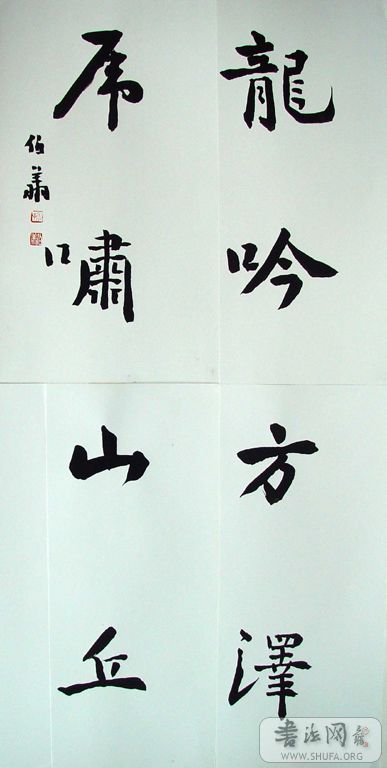 龍吟方澤
虎嘯山丘
書法网
WWW.SHUFA.ORG